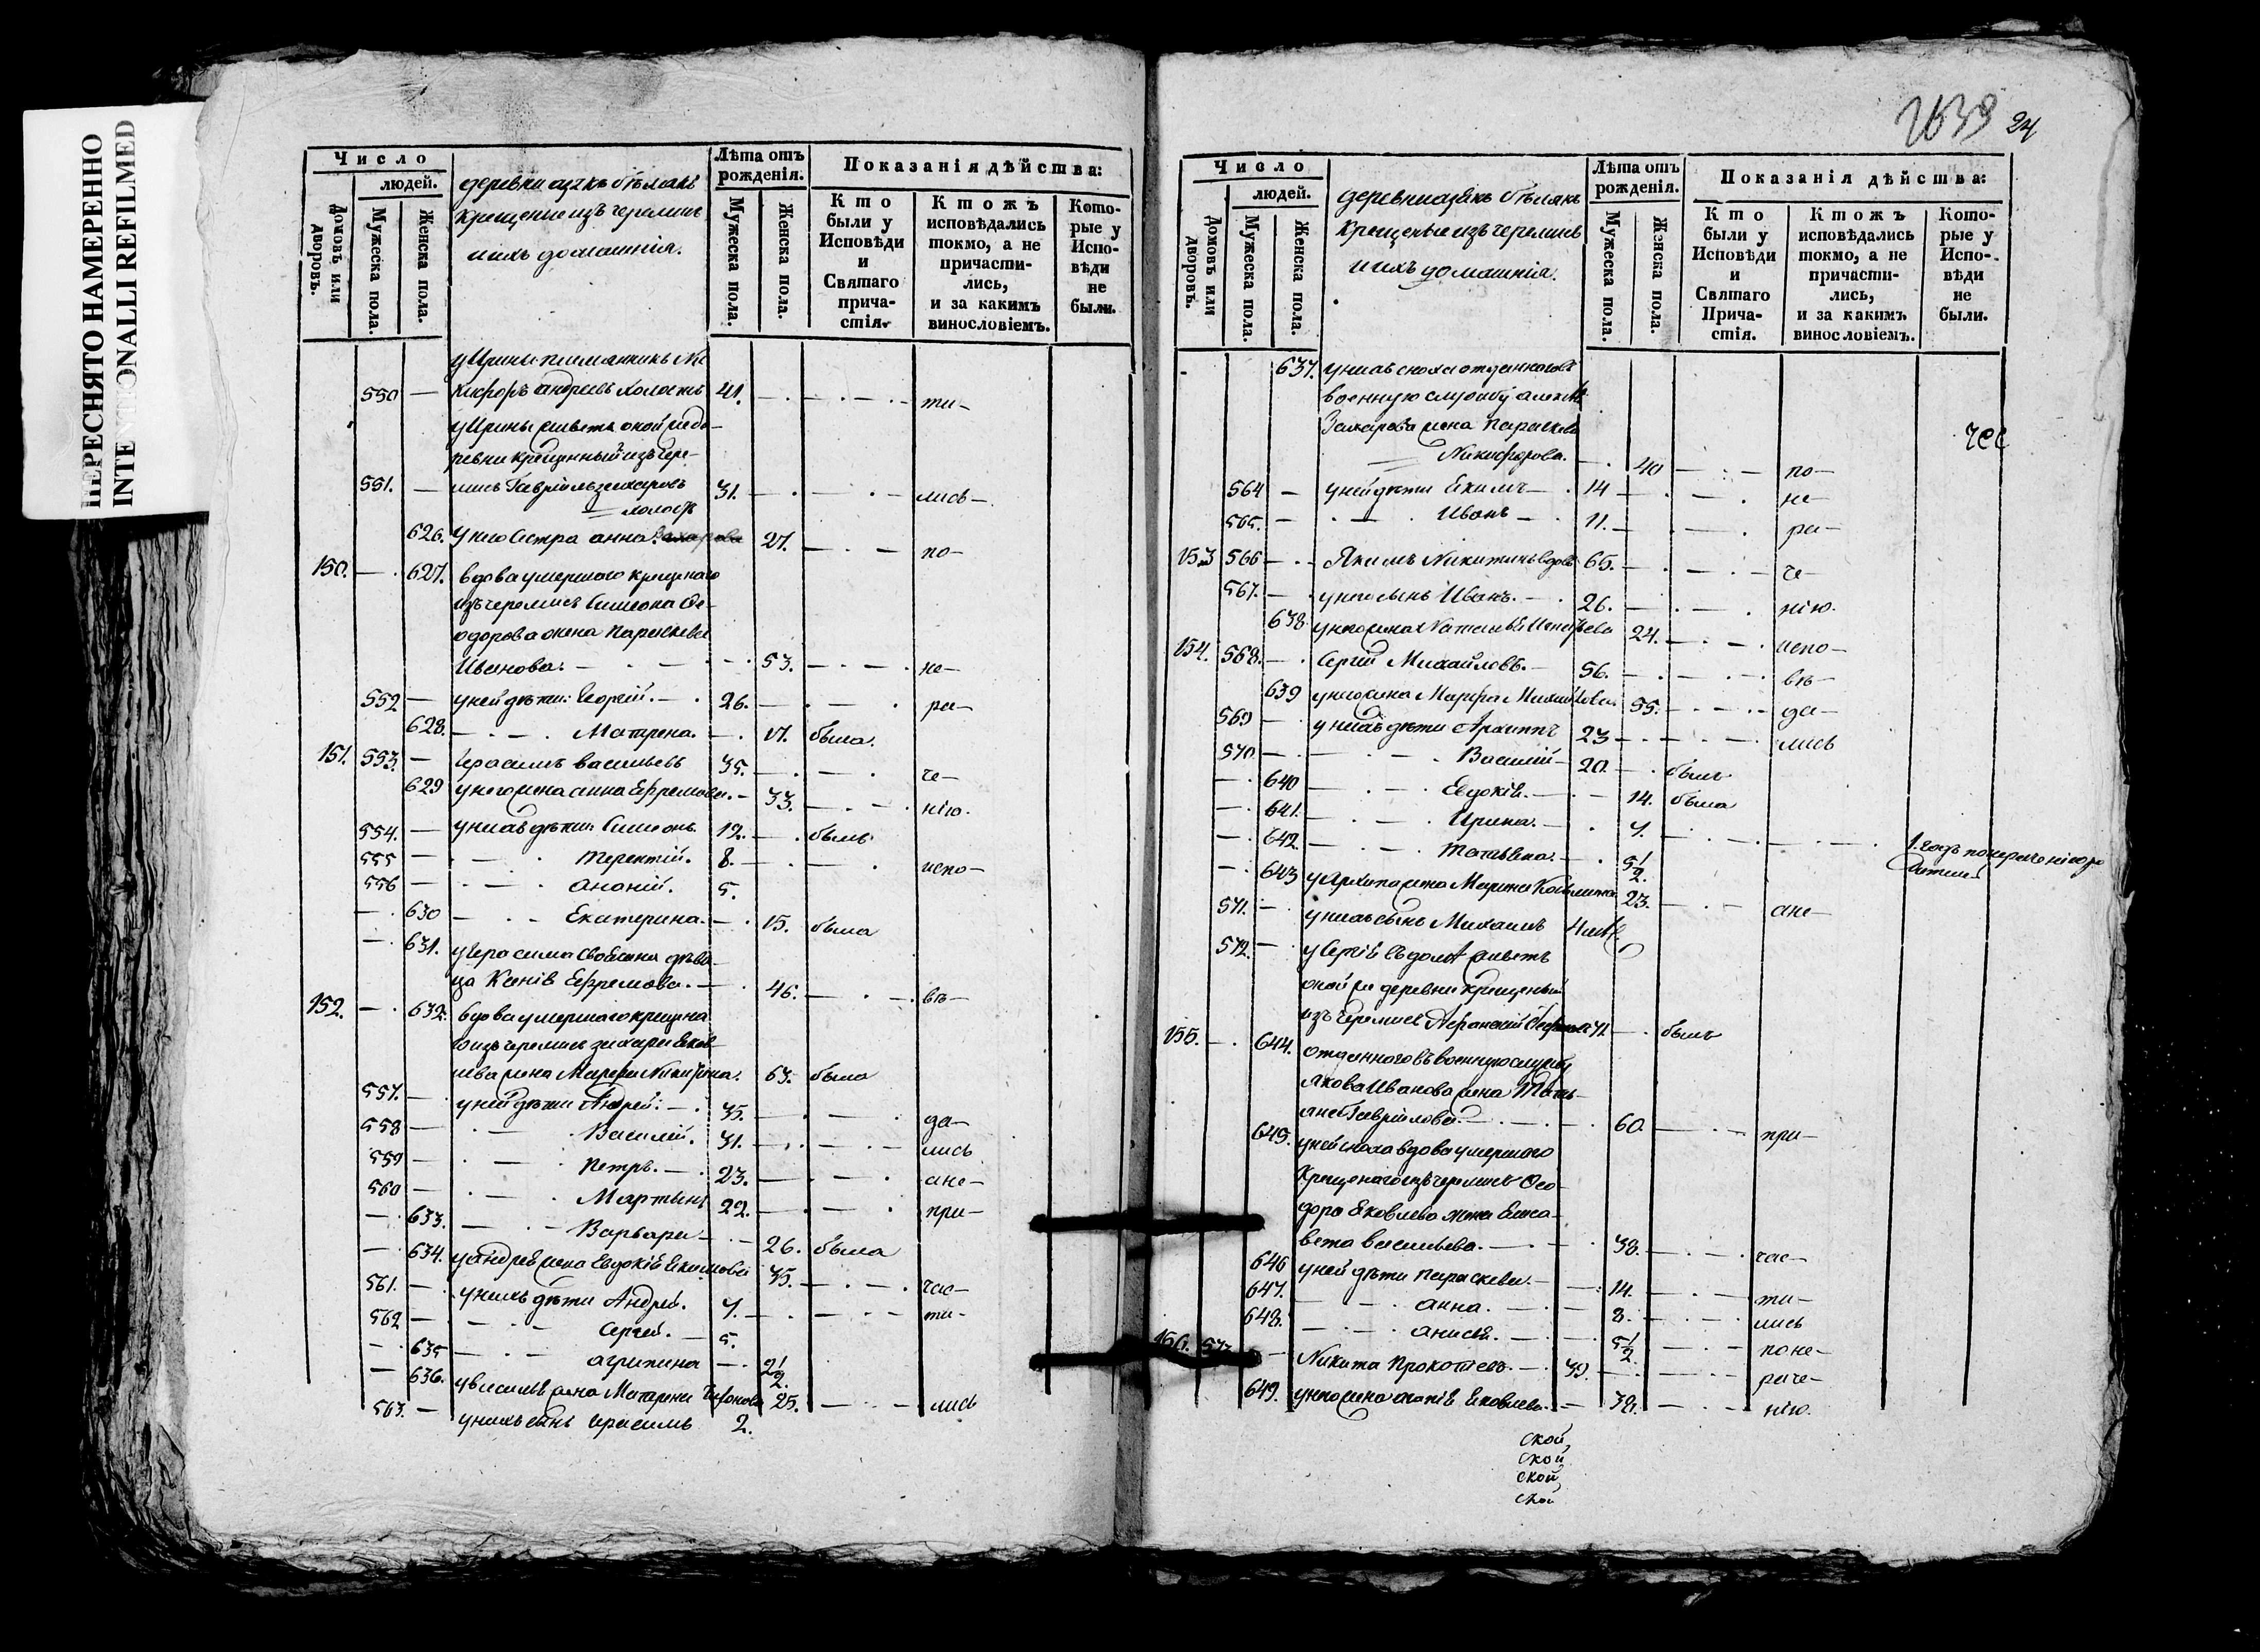 ПЕРЕСНЯТО НАМЕРЕННО
INTENTIONALLI REFILMED
Число
людей.
Домовъ или дворовъ.
Мужеска пола.
Женска пола.
деревни
крещеные изъ черемисъ
ихъ домашнія.
Лѣта отъ рожденія.
Мужеска пола.
Женска пола.
Показанія дѣйства:
Кто были у Исповѣди и Святаго причастія.
Ктожъ исповѣдались токмо, а не причастились, и за какимъ винословіемъ.
Которые у Исповѣди не были.
у Ирины племянникъ Ни
550 — кифоръ андреевъ холостъ 41. — ти—
у Ирины живетъ оной же де
ревни крещенный изъ чере
551. — мисъ Гавріилъ захаровъ 31. — лись—
холостъ
626. у него сестра анна захарова 27. — по—
150. — 627. вдова умершаго крещенаго
изъ черемисъ Симеона Ѳе-
одорова жена параскева
Иванова. — 53. — не—
552 — у ней дѣти: Георгій. — 26. — ра—
628. — Матрена. — 17. была.
151. 553. — Герасимъ васильевъ 35. — че—
629 у него жена анна Ефремова. — 33. — нію.
554. — у нихъ дѣти: Симеонъ 12. — былъ
555 — терентій. 8. — испо—
556 — ананій. 5.
630 — Екатерина. — 15. была
631. у Герасима свояченя дѣви
ца Ксенія Ефремова. — 46. — вѣ—
152. — 632. вдова умершаго крещена
го изъ черемисъ захара Яков
лева жена Марфа Никитина. 63. была
557. — у ней дѣти Андрей. — 35. — да—
558 — Василій. 31. — лись
559 — петръ. — 23. — ане—
560 — Мартынъ 22. — при—
633. — Варвара — 26. была
634. у андрея жена Евдокія Екимова 35. — час—
561. — у нихъ дѣти Андрей. 7. — ти—
562 — Сергей. — 5.
635 — агрипина — 2 1/2.
636. у василья жена Матрена 25. — лись
563. — у нихъ сынъ Герасимъ 2.
2639 24
Число
людей.
Домовъ или дворовъ.
Мужеска пола.
Женска пола.
деревни
Крещеные изъ черемисъ
ихъ домашнія.
Лѣта отъ рожденія.
Мужеска пола.
Женска пола.
Показанія дѣйства:
Кто были у Исповѣди и Святаго Причастія.
Ктожъ исповѣдались токмо, а не причастились, и за какимъ винословіемъ.
Которые у Исповѣди не были.
637. у нихъ сноха отданнаго въ
военную службу
Захарова жена параскева
Никифорова. — 40 — по—
564 — у ней дѣти Екимъ — 14 — не—
565. — Иванъ — 11. — ра—
153 566 — Якимъ Никитинъ вдовъ 65. — че—
567. — у него сынъ Иванъ. — 26. — нію.
638 у него жена 24. — испо—
154. 568. — Сергій Михайловъ. — 56. — вѣ—
639 у него жена Марфа 55. — да—
569 — у нихъ дѣти Архиппъ 23 — лись
570 — Василій — 20. — былъ
640 — Евдокія. — 14. была
641. — Ирина. — 7.
642. — татьяна. — 5 1/2.
643 у Архипа жена Марина 23. — ане—
571. — у нихъ сынъ Михаилъ
572. — у Сергія въ домѣ живетъ
оной же деревни крещеный
изъ черемисъ — былъ
155. — 644. отданнаго въ военную службу
Якова Иванова жена Тать-
яна Гаврилова. — 60. — при—
645. у ней сноха вдова умершаго
Крещенаго изъ черемисъ Ѳео-
дора Яковлева жена Елиса-
вета васильева. — 38. — час—
646 у ней дѣти параскева. — 14. — ти—
647. — анна. — 8. — лись
648. — анисія. — 5 1/2 — поне—
156. 573 — Никита Прокопьевъ. — 39. — раче—
649. у него жена Яковлева. — 38. — нію.
ской
ской
ской
ской